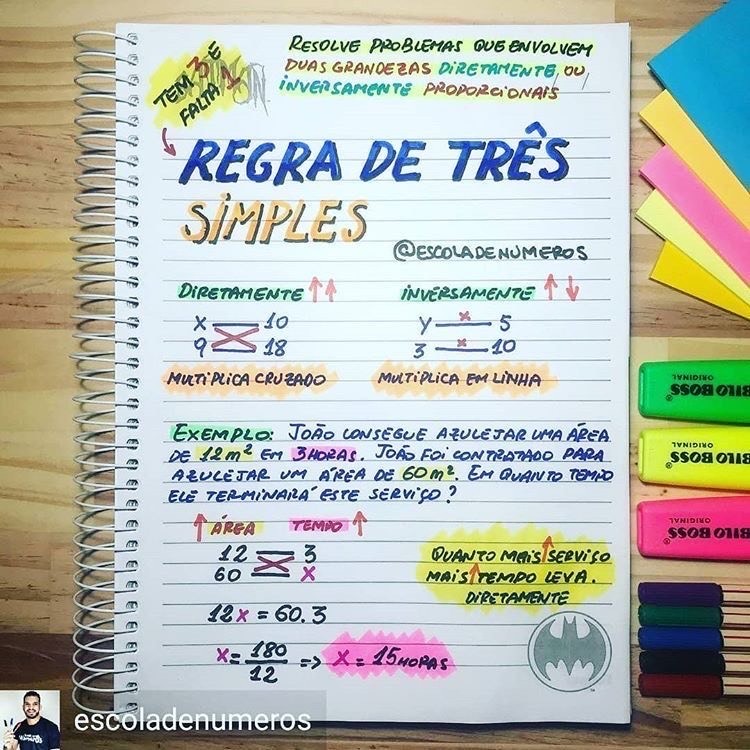 TEM 3 E
FALTA 1
RESOLVE PROBLEMAS QUE ENVOLVEM
DUAS GRANDEZAS DIRETAMENTE, OU
INVERSAMENTE PROPORCIONAIS
REGRA DE TRÊS
SIMPLES
@ESCOLADENUMEROS
DIRETAMENTE ↑↑
X 10
9 18
MULTIPLICA CRUZADO
INVERSAMENTE ↑↓
Y x 5
3 x 10
MULTIPLICA EM LINHA
EXEMPLO: JOÃO CONSEGUE AZULEJAR UMA ÁREA
DE 12m² EM 3 HORAS. JOÃO FOI CONTRATADO PARA
AZULEJAR UM ÁREA DE 60m². EM QUANTO TEMPO
ELE TERMINARÁ ESTE SERVIÇO?
↑ ÁREA TEMPO ↑
12 3
60 X
12X = 60.3
X = 180/12 => X = 15 HORAS
QUANTO MAIS ↑ SERVIÇO
MAIS ↑ TEMPO LEVA.
DIRETAMENTE
BILO BOSS
ORIGINAL
BILO BOSS
ORIGINAL
BILO BOSS
ORIGINAL
escoladenumeros